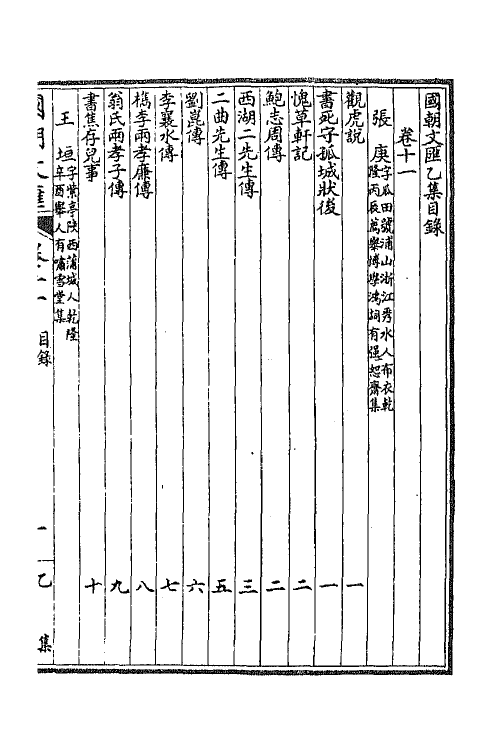 國朝文匯乙集目錄
卷十一
張 庚 字瓜田號浦山浙江秀水人布衣乾
隆丙辰薦舉博學鴻詞有強恕齋集
觀虎說 一
書死守孤城狀後 一
愧草軒記 二
鮑志周傳 二
西湖二先生傳 三
二曲先生傳 五
劉崑傳 六
李襄水傳 七
檇李兩孝廉傳 八
翁氏兩孝子傳 九
書焦存兒事 十
王 垣 字紫亭陝西蒲城人乾隆
辛酉舉人有嘯雪堂集
國朝文匯 卷十一 目錄 一 乙集